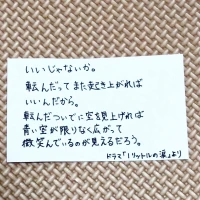 いいじゃないか。
転んだってまた起き上がれば
いいんだから。
転んだついでに空を見上げれば
青い空が限りなく広がって
微笑んでいるのが見えるだろう。
ドラマ「1リットルの涙」より